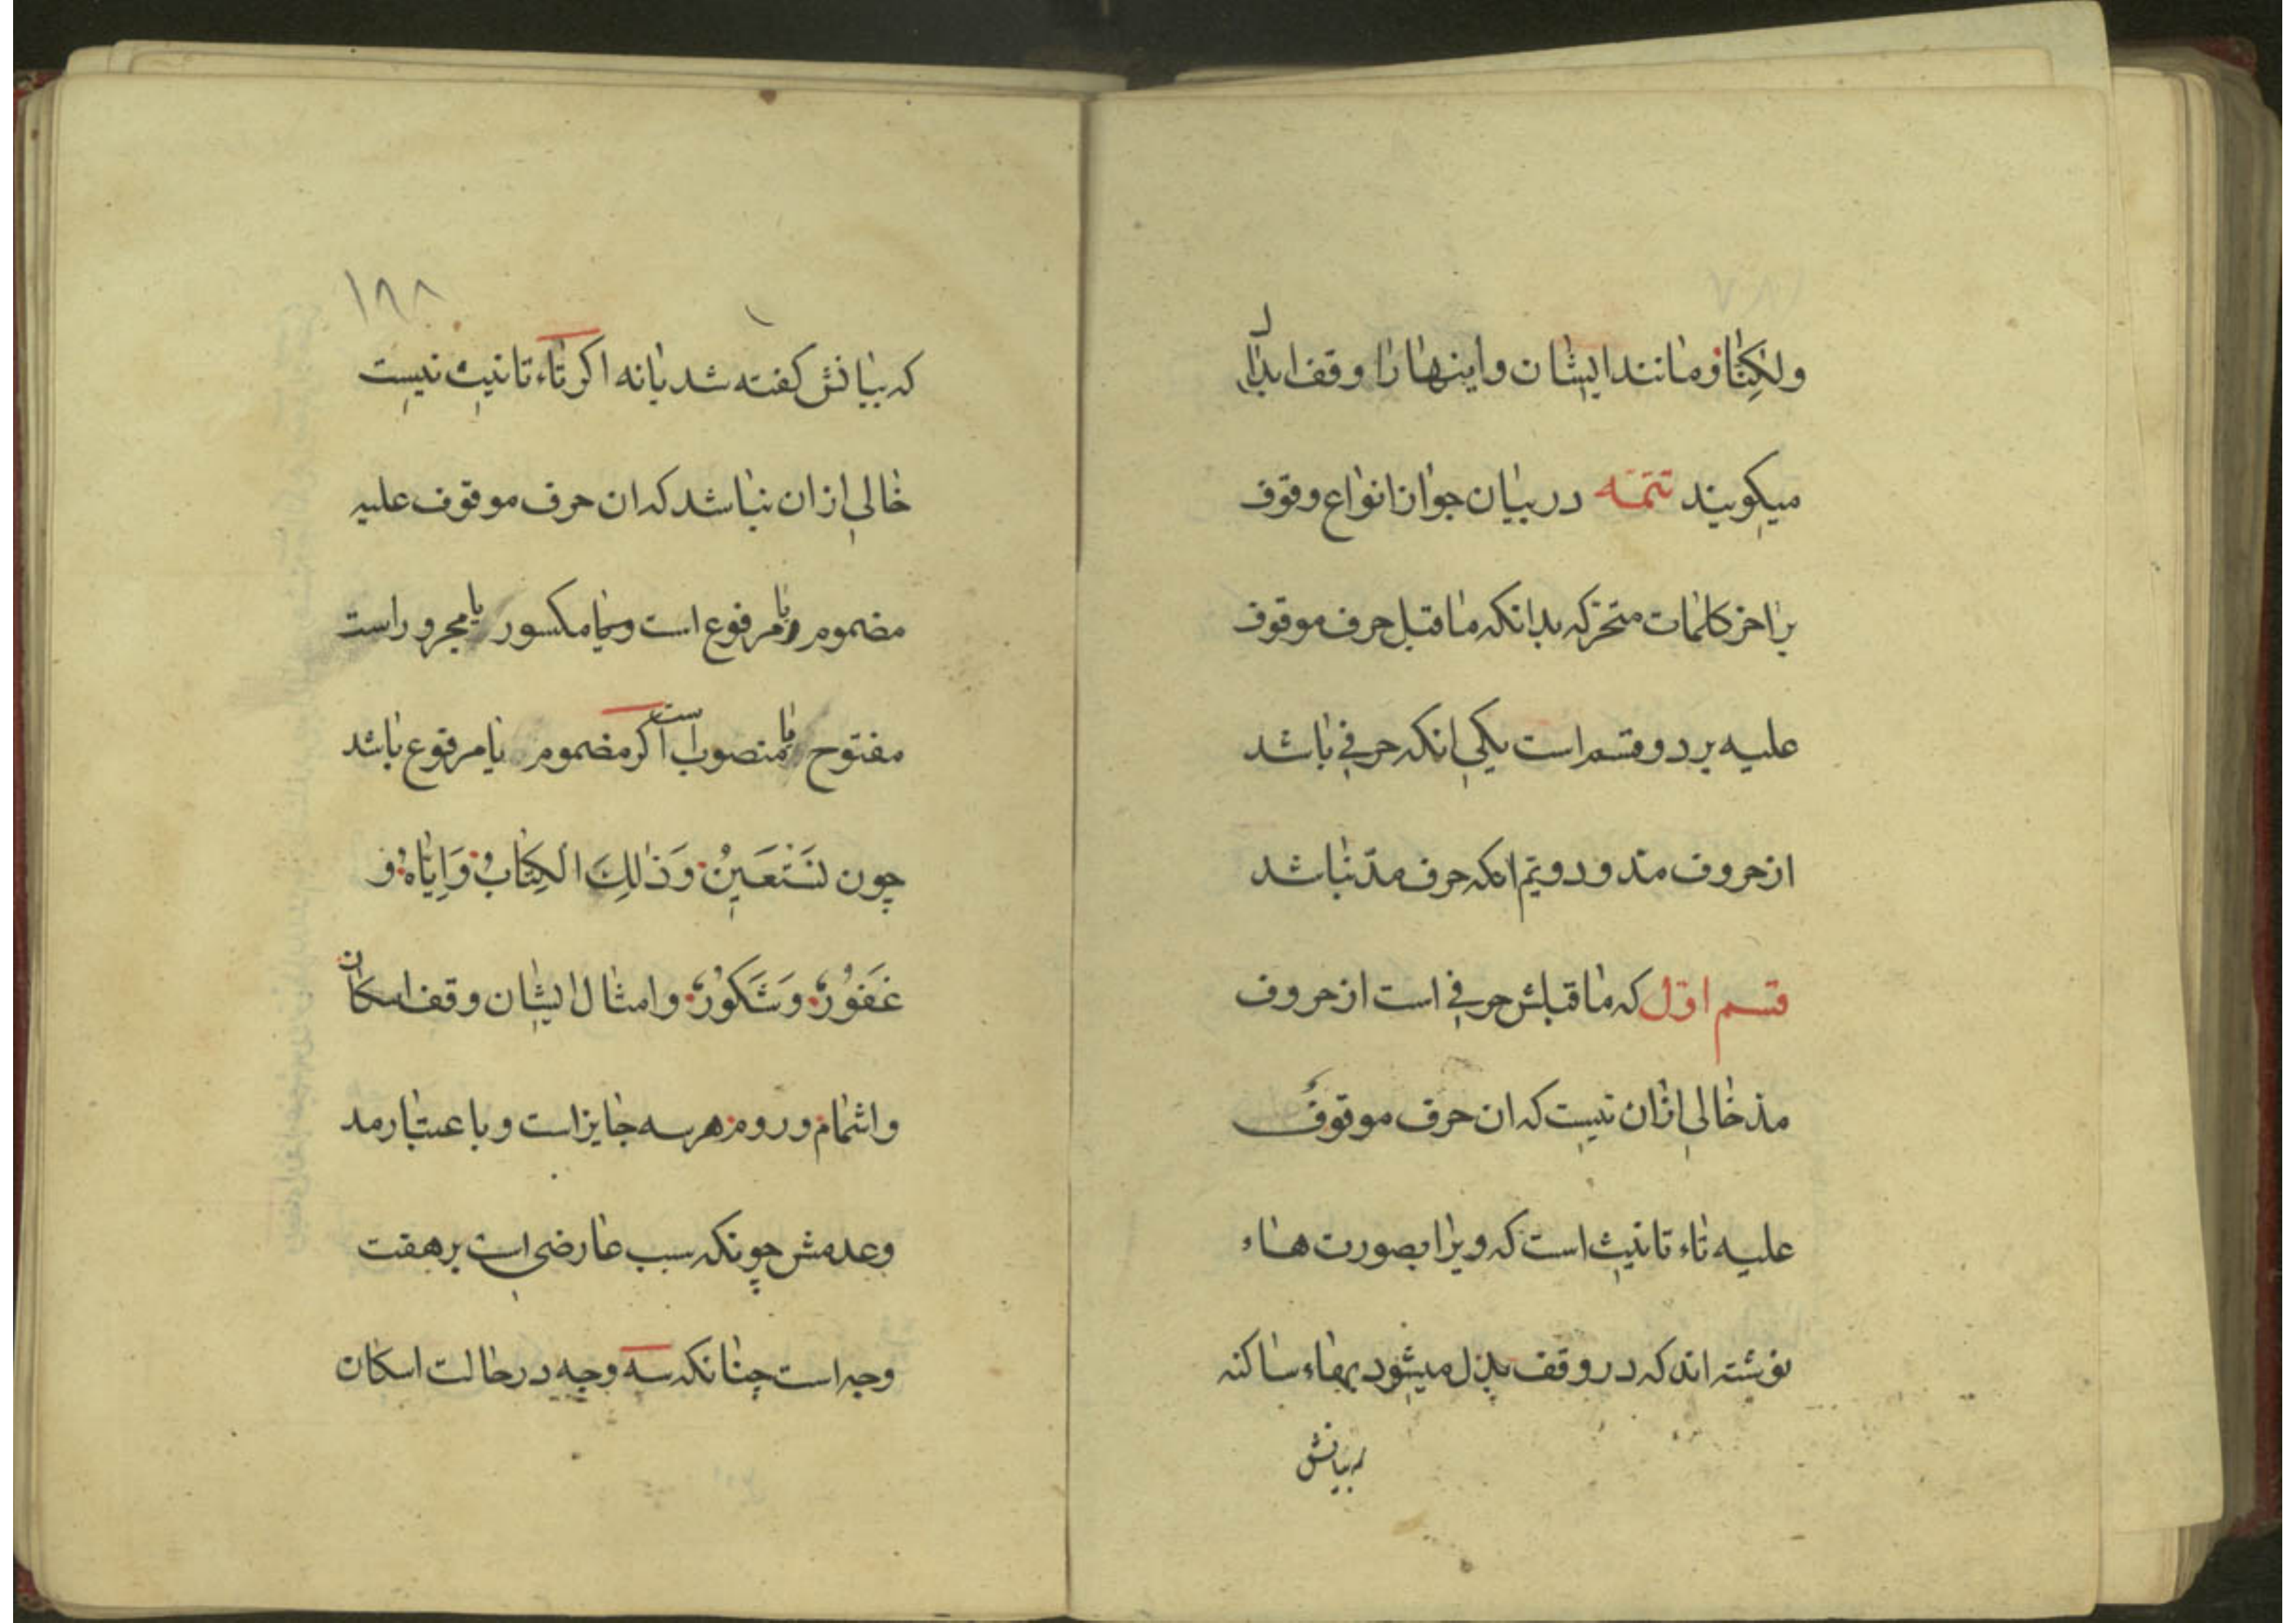 ولٰكِنّا و مانند ایشان و اینها را وقف ابدال
میکویند تتمّه در بیان جواز انواع وقوف
بر اخر کلمات متحرّکه بدانکه ماقبل حرف موقوف
علیه بر دو قسم است یکی انکه حرفی باشد
از حروف مدّ و دویّم انکه حرف مدّ نباشد
قسم اوّل که ماقبلش حرفی است از حروف
مدّ خالی ازان نیست که ان حرف موقوف
علیه تاء تانیث است که ویرا بصورت هاء
نوشته اند که در وقف بدل میشود بهاء ساکنه
که بیانش
۱۹۸
که بیانش کفته شد یا نه اکر تاء تانیث نیست
خالی ازان نباشد که ان حرف موقوف علیه
مضموم و یا مرفوع است و یا مکسور یا مجرور است
مفتوح یا منصوب است اکر مضموم یا مرفوع باشد
چون نَسْتَعِینُ وَ ذٰلِكَ الْكِتَابُ وَ اِیّاهُ و
غَفُورٌ وَ شَكُورٌ و امثال ایشان وقف اسکان
و اشمام و روم هر سه جایز است و باعتبار مد
و عدمش چونکه سبب عارضی است بر هفت
وجه است چنانکه سه وجه در حالت اسکان